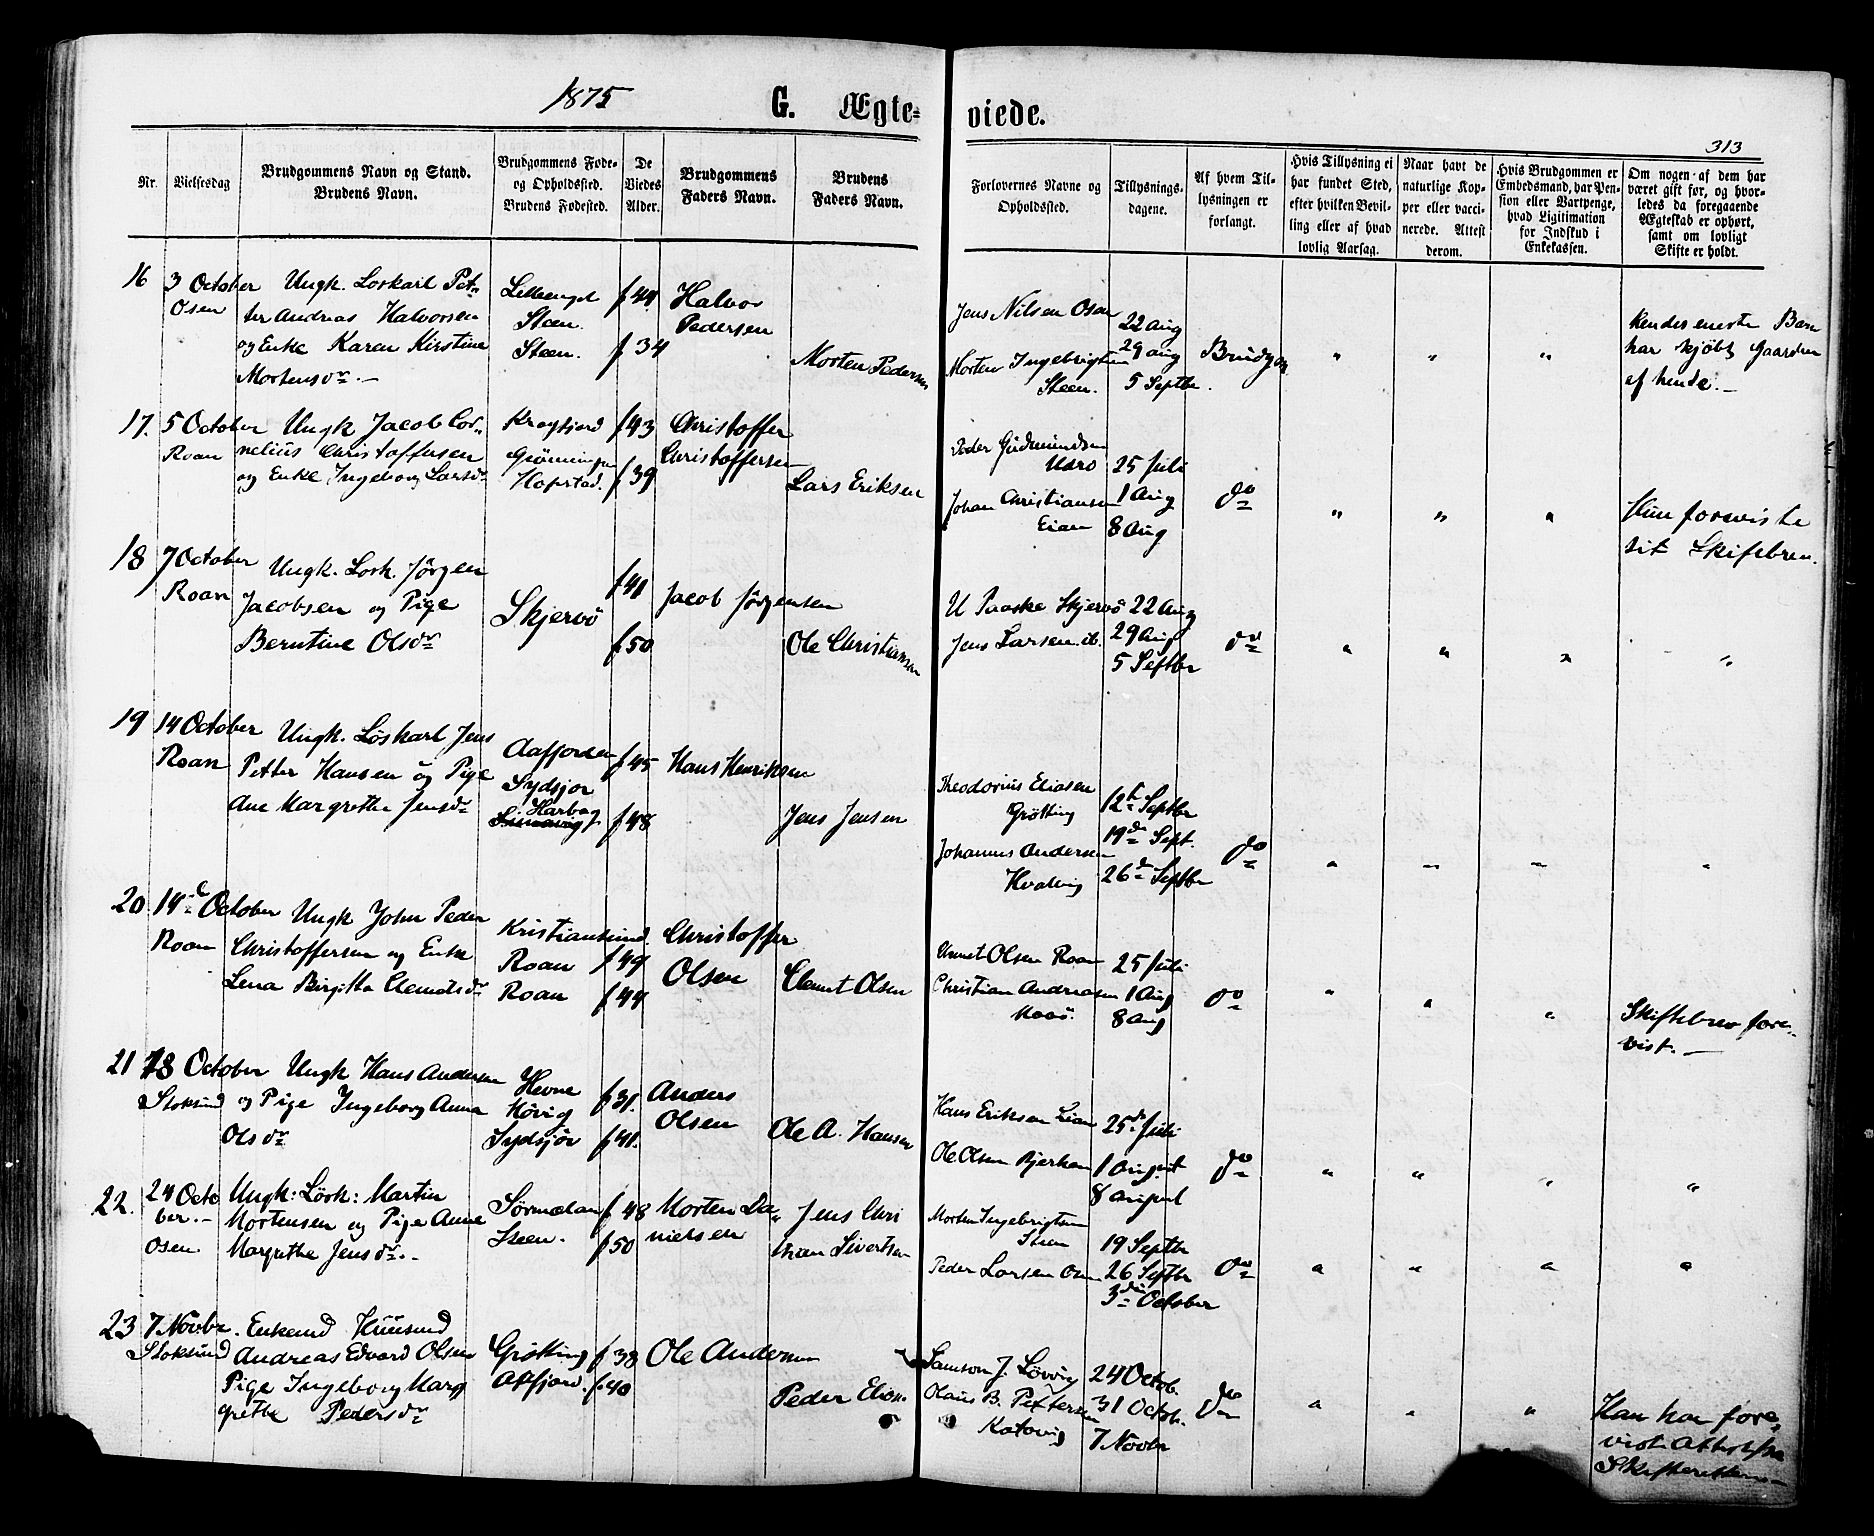 1875
G. Ægteviede.
313
Nr.
Vielsesdag
Brudgommens Navn og Stand.
Brudens Navn.
Brudgommens Føde-
og Opholdssted.
Brudens Fødested.
De
Viedes
Alder.
Brudgommens
Faders Navn.
Brudens
Faders Navn.
Forlovernes Navne og
Opholdssted.
Tillysnings-
dagene.
Af hvem Til-
lysningen er
forlangt.
Hvis Tillysning ei
har fundet Sted,
efter hvilken Bevil-
ling eller af hvad
lovlig Aarsag.
Naar havt de
naturlige Kop-
per eller vacci-
nerede. Attest
derom.
Hvis Brudgommen er
Embedsmand, har Pen-
sion eller Vartpenge,
hvad Ligitimation
for Indskud i
Enkekassen.
Om nogen af dem har
været gift før, og hvor-
ledes da foregaaende
Ægteskab er ophørt,
samt om lovligt
Skifte er holdt.
16 3 October
Osen
Ungk. Loskarl Pet-
ter Andreas Halvorsen
og Enke Karen Kirstine
Mortensdr.
Steen.
Steen.
f 44
f 34
Halvor
Pedersen
Morten Pedersen
Jens Nilsen Osen
Morten Ingebrigtsen
Steen.
22 Aug
29 Aug
5 Septbr.
Brudgom
" " "
Hendes eneste Barn
har kjøbt Gaarden
af hende.
17. 5 October
Roan
Ungk Jacob Cor-
nelius Christoffersen
og Enke Ingeborg Larsdr
Hofstad.
f 43
f 39
Christoffer
Christoffersen
Lars Eriksen
Peder Gudmundsen
Johan Christiansen
Eian
25 Juli
1 Aug
8 Aug
do
" " "
Hun foreviste
sit Skifebrev.
18 7 October
Roan
Ungk. Losk. Jörgen
Jacobsen og Pige
Berntine Olsdr
Skjervö
f 41
f. 50
Jacob Jörgensen
Ole Christiansen
U Paaske Skjervö
Jens Larsen ib.
22 Aug
29 Aug
5 Septbr
do
" " " "
19 14 October
Roan
Ungk. Löskarl Jens
Petter Hansen og Pige
Ane Margrethe Jensdr
Aafjorden
Sydsjör
Harbag
f 45
f 48
Hans Henriksen
Jens Jensen
Theodorius Eliasen
Grötting
Johannes Andersen
12te Septbr
19de Sept.
26de Septbr
do
" " " "
20 14de October
Roan
Ungk John Peder
Christoffersen og Enke
Lena Birgitta Clemetsdr
Kristiansund.
Roan
Roan
f 49
f 44
Christoffer
Olsen
Clemet Olsen
Olsen Roan
Christian Andreasen
25 Juli
1 Aug
8 Aug
do
" " "
Skiftebrev fore-
vist.
21 18 October
Stoksund
Ungk Hans Andersen
og Pige Ingeborg Anna
Olsdr
Hevne
Sydsjör
f 31.
f 41.
Anders
Olsen
Ole A. Hansen
Hans Eriksen Lian
Ole Olsen Bjerkan
25de Juli
1 August
8 August
do
" " " "
22. 24 Octo
ber.
Osen
Ungk: Lösk: Martin
Mortensen og Pige Anne
Margrethe Jensdr.
Sörmelan
Steen.
f 48
f 50
Morten Da-
nielsen
Jens Chri
stian Sivertsen
Morten Ingebrigtsen
Steen
Peder Larsen Osen
19 Septbr
26 Septbr
3die October
do
" " " "
23 7 Novbr.
Stoksund
Enkemd Huusmd
Andreas Edvard Olsen
Pige Ingeborg Marg
grethe Pedersdr
Grötting
Aafjord.
f 38
f. 40
Ole Andersen
Peder Eliasen
Samson J. Lövvig
Olaus B. Pettersen
24 Octob.
31 Octob.
7 Novbr
do
" " "
Han har fore-
vist Attest fra
Skifteretten